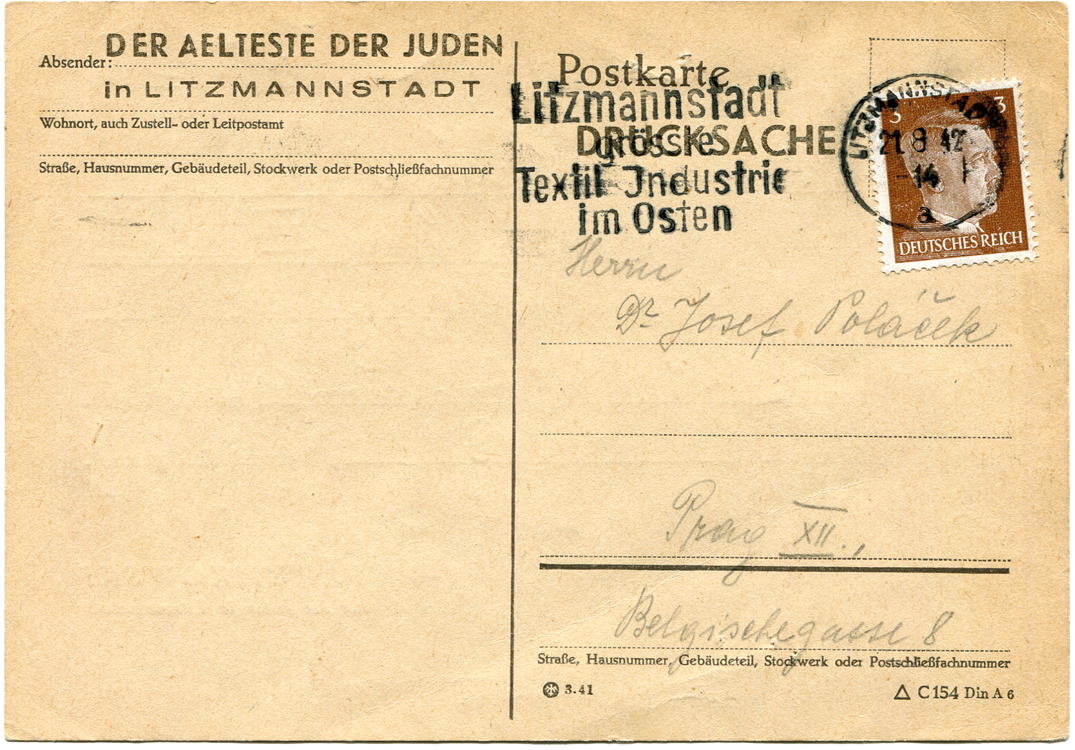 Absender: DER AELTESTE DER JUDEN
in LITZMANNSTADT
Wohnort, auch Zustell- oder Leitpostamt
Straße, Hausnummer, Gebäudeteil, Stockwerk oder Postschließfachnummer
Postkarte
Litzmannstadt
DRUCKSACHE
grösste
Textil Industrie
im Osten
LITZMANNSTADT
21.8.42
-14
a
3
3
DEUTSCHES REICH
Herrn
Dr. Josef Poláček
Prag XII.,
Belgischegasse 8
Straße, Hausnummer, Gebäudeteil, Stockwerk oder Postschließfachnummer
3.41
△ C 154 Din A 6